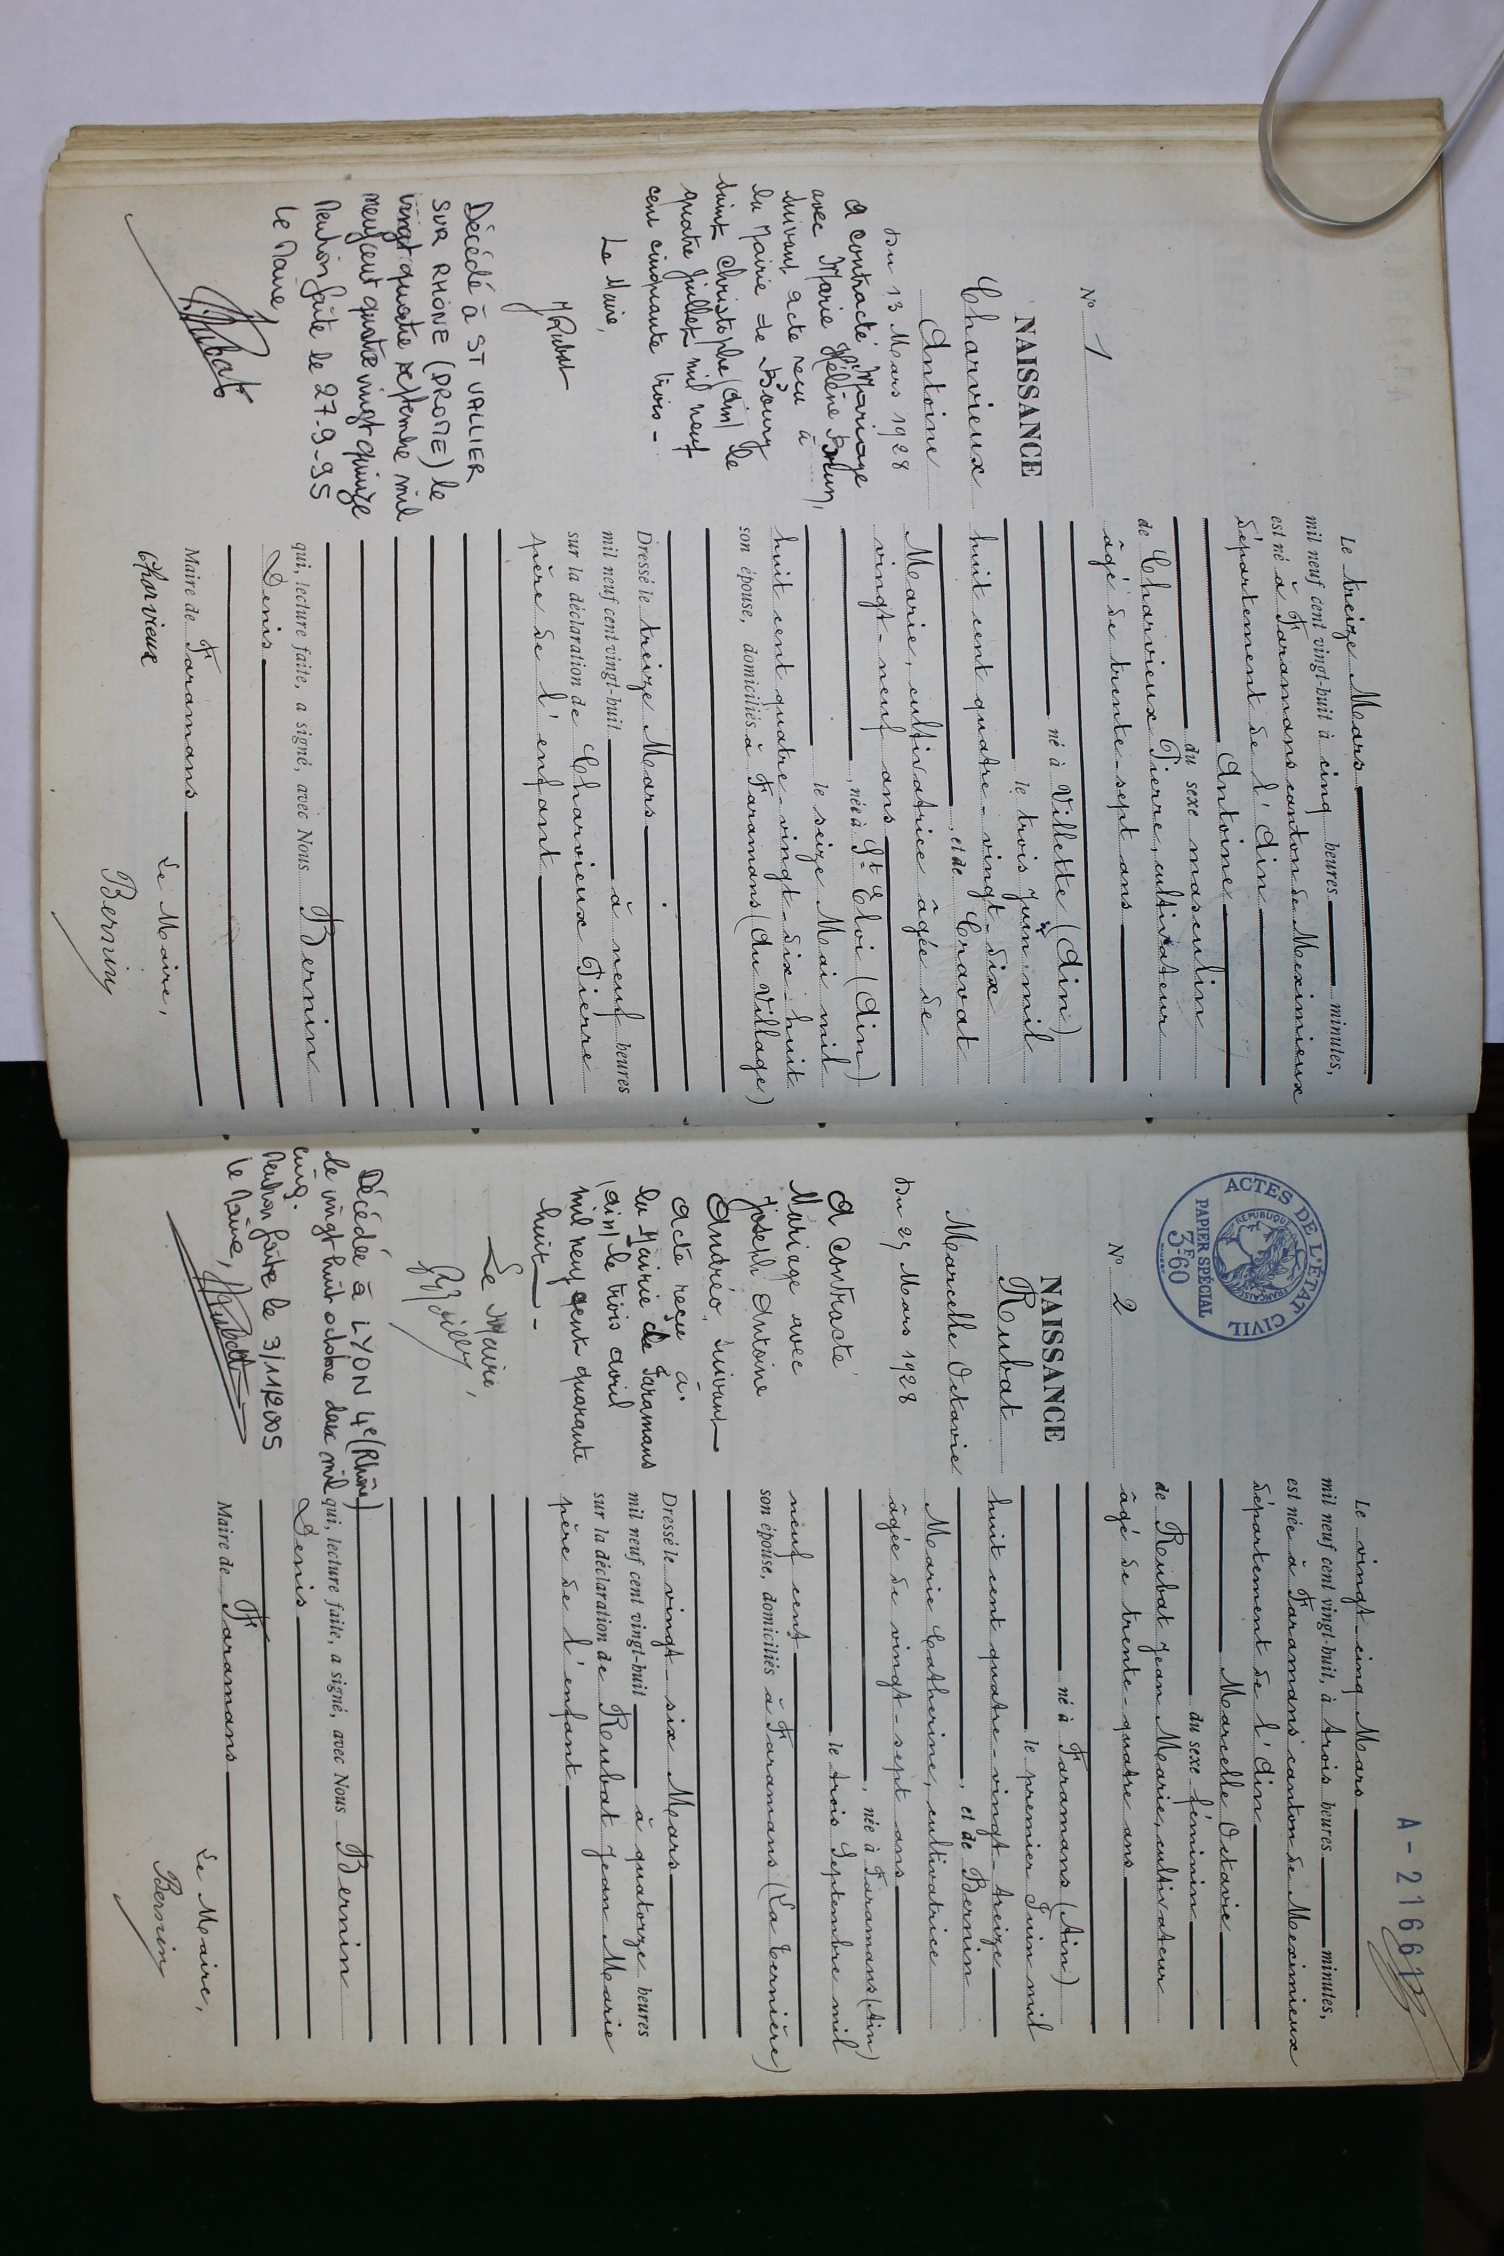 N° 1
NAISSANCE
Charvieux
Antoine
Du 13 Mars 1928
A contracté Mariage
avec Marie Hélène Brun,
suivant acte reçu à
la Mairie de Bourg
Saint Christophe (Ain) le
quatre Juillet mil neuf
cent cinquante trois -
Le Maire,
Décédé à ST VALLIER
SUR RHÔNE (DROME) le
vingt quatre septembre mil
neuf cent quatre vingt quinze
Mention faite le 27-9-95
Le Maire,
Le treize Mars
mil neuf cent vingt-huit à cinq heures minutes,
est né à Faramans canton de Meximieux
département de l'Ain
Antoine
du sexe masculin
de Charvieux Pierre, cultivateur
âgé de trente-sept ans
né à Villette (Ain)
le trois Juin mil
huit cent quatre-vingt-dix
, et de Cravat
Marie, cultivatrice âgée de
vingt-neuf ans
, née à St Eloi (Ain)
le seize Mai mil
huit cent quatre-vingt-dix huit
son épouse, domiciliés à Faramans (Au Village)
Dressé le treize Mars
mil neuf cent vingt-huit à neuf heures
sur la déclaration de Charvieux Pierre
père de l'enfant
qui, lecture faite, a signé, avec Nous Bernin
Denis
Maire de Faramans
Le Maire,
Charvieux
Bernin
ACTES DE L'ÉTAT CIVIL
RÉPUBLIQUE FRANÇAISE
PAPIER SPÉCIAL
3F60
A-21661
N° 2
NAISSANCE
Rubat
Marcelle Octavie
Du 25 Mars 1928
A contracté
Mariage avec
Joseph Antoine
Andréo, suivant
acte reçu à
la Mairie de Faramans
(Ain) le trois avril
mil neuf cent quarante
huit -
Le Maire,
Décédée à LYON 4e (Rhône)
le vingt huit octobre deux mil
cinq.
Mention faite le 3/11/2005
Le Maire,
Le vingt-cinq Mars
mil neuf cent vingt-huit, à trois heures minutes,
est née à Faramans canton de Meximieux
département de l'Ain
Marcelle Octavie
du sexe féminin
de Rubat Jean Marie, cultivateur
âgé de trente-quatre ans
né à Faramans (Ain)
le premier Juin mil
huit cent quatre-vingt-treize
, et de Bernin
Marie Catherine, cultivatrice
âgée de vingt-sept ans
, née à Faramans (Ain)
le trois Septembre mil
neuf cent
son épouse, domiciliés à Faramans (La Bernière)
Dressé le vingt-six Mars
mil neuf cent vingt-huit à quatorze heures
sur la déclaration de Rubat Jean Marie
père de l'enfant
qui, lecture faite, a signé, avec Nous Bernin
Denis
Maire de Faramans
Le Maire,
Bernin